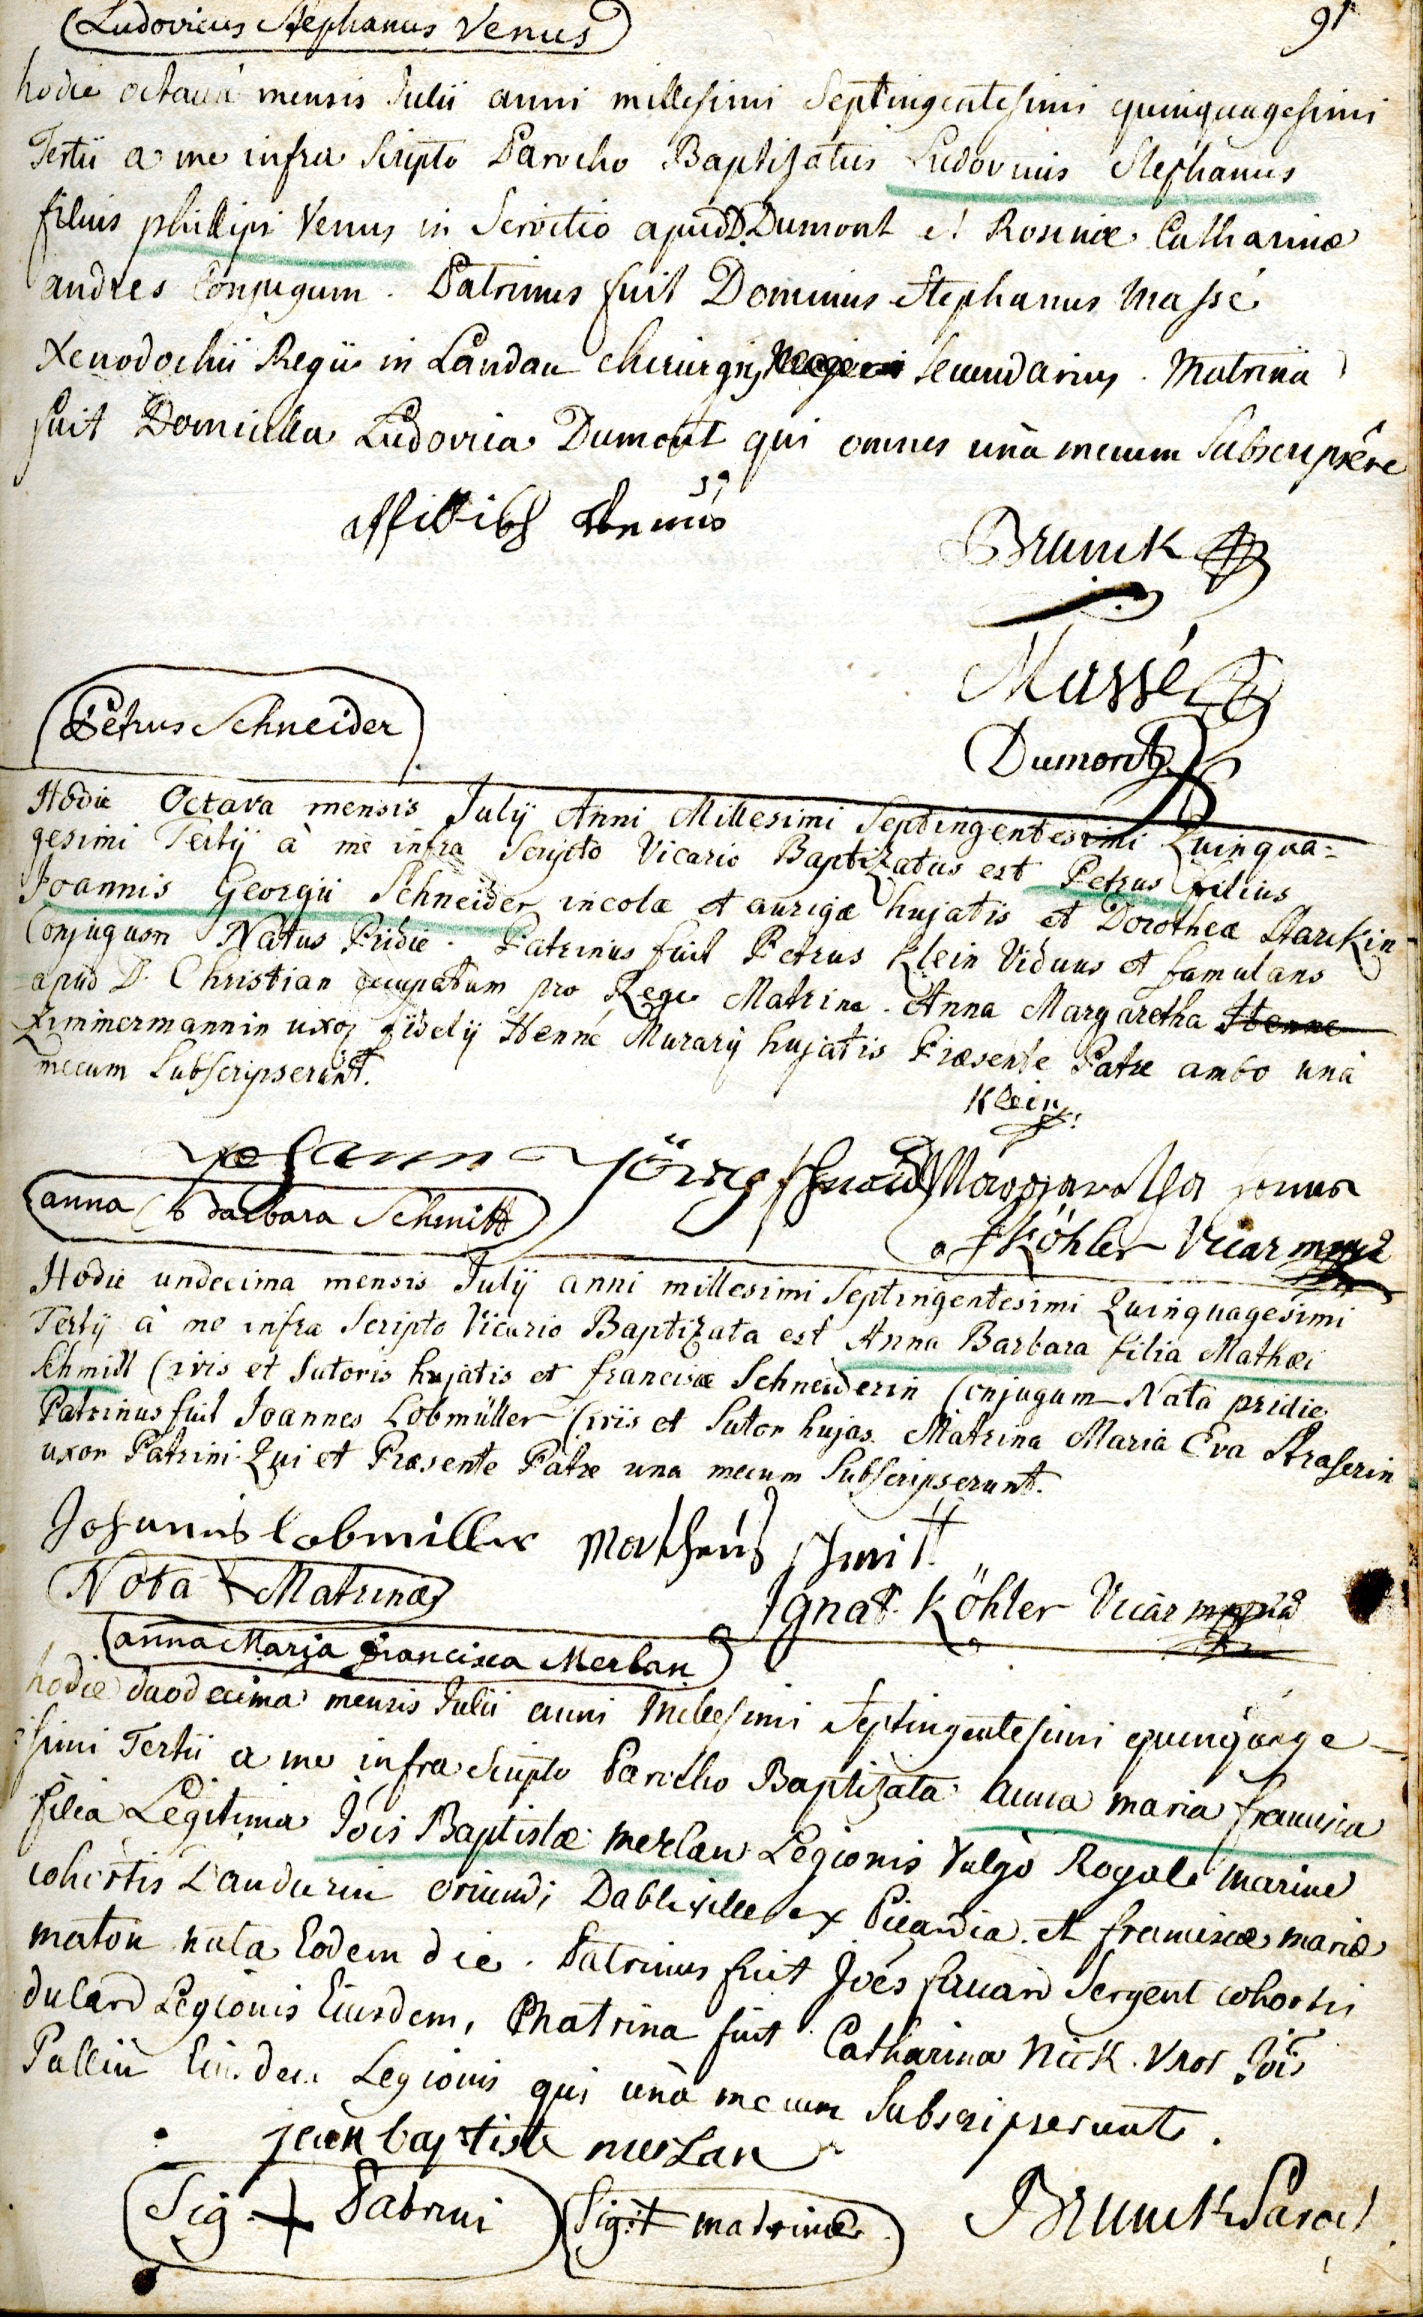 Ludovicus Stephanus Venus
91
hodie octava mensis Julii anni millesimi Septingentesimi quinquagesimi
Tertii a me infra Scripto Parocho Baptizatus Ludovicus Stephanus
filius phillipi Venus in Servitio apud D. Dumont et Rosinæ Catharinæ
andres Conjugum. Patrinus fuit Dominus Stephanus Massé
Xenodochii Regii in Landau chirurgus secundarius. Matrina
fuit Domicella Ludovica Dumont qui omnes unà mecum Subscripsêre
Brunck
Massé
Dumont
Petrus Schneider
Hodie Octava mensis Julÿ Anni Millesimi Septingentesimi Quinqua=
gesimi Tertÿ à me infra Scripto Vicario Baptizatus est Petrus filius
Joannis Georgii Schneider incolæ et aurigæ hujatis et Dorotheæ Starckin
Conjugum Natus Pridie. Patrinus fuit Petrus Klein Viduus et famulans
apud D. Christian occupatum pro Rege Matrina. Anna Margaretha Henne
Zimmermannin uxor fidelÿ Henné Murarÿ hujatis Præsente Patre ambo unà
mecum Subscripserunt.
Klein
Johann Jörg Schneider Margaretha
Köhler Vicar mppria
anna barbara Schmitt
Hodie undecima mensis Julÿ anni millesimi Septingentesimi Quinquagesimi
Tertÿ à me infra Scripto Vicario Baptizata est Anna Barbara filia Mathæi
Schmitt Civis et Sutoris hujatis et franciscæ Schneiderin Conjugum Nata pridie
Patrinus fuit Joannes Lobmüller Civis et Sutor hujas. Matrina Maria Eva Straserin
uxor Patrini. Qui et Præsente Patre una mecum Subscripserunt.
Johannes lobmiller Matheus Schmitt
Nota + Matrinæ
Ignat. Köhler Vicar mppria
anna Maria francisca Merlan
hodie duodecima mensis Julii anni Millesimi Septingentesimi quinquage
simi Tertii a me infra Scripto Parocho Baptizata anna maria francisca
filia Legitima Jois Baptistæ merlan Legionis Vulgo Royale marine
cohortis Landurin oriundi Dableville ex Picardia. et franciscæ mariæ
maton nata Eodem die. Patrinus fuit Joes fauard Sergent cohortis
dulard Legionis Eiusdem, Matrina fuit Catharina Nick. Vxor Jois
Pallin Eiusdem Legionis qui unà mecum Subscripserunt.
jean baptiste merlan
Sig + Patrini
Sig + matrinæ
Brunck Paroch